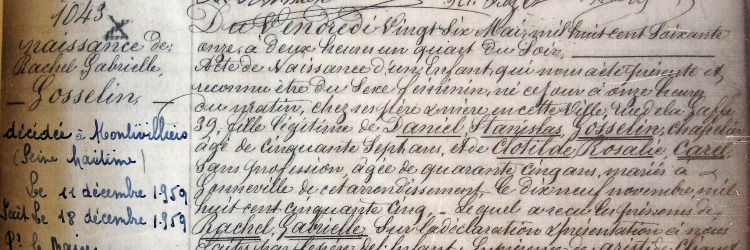 1043
naissance de
Rachel Gabrielle
Gosselin,
décédée à Montivilliers
(Seine Maritime)
Le 11 décembre 1959
Fait Le 18 décembre 1959
Du Vendredi Vingt Six Mai, mil huit cent soixante
onze, à deux heures un quart du soir,
Acte de Naissance d'un Enfant, qui nous a été présenté et
reconnu être du Sexe féminin, né ce jour à onze heures
du matin, chez ses père & mère, en cette Ville, rue de la
39, fille légitime de Daniel, Stanislas, Gosselin, chapelier
âgé de cinquante Sept ans, et de Clotilde, Rosalie, Carel
sans profession, âgée de quarante cinq ans, mariés à
Gonneville de cet arrondissement, le dix neuf novembre mil
huit cent cinquante cinq, - Lequel a reçu les prénoms de
Rachel, Gabrielle, Sur la déclaration & présentation à nous
faites par le père de l'Enfant,